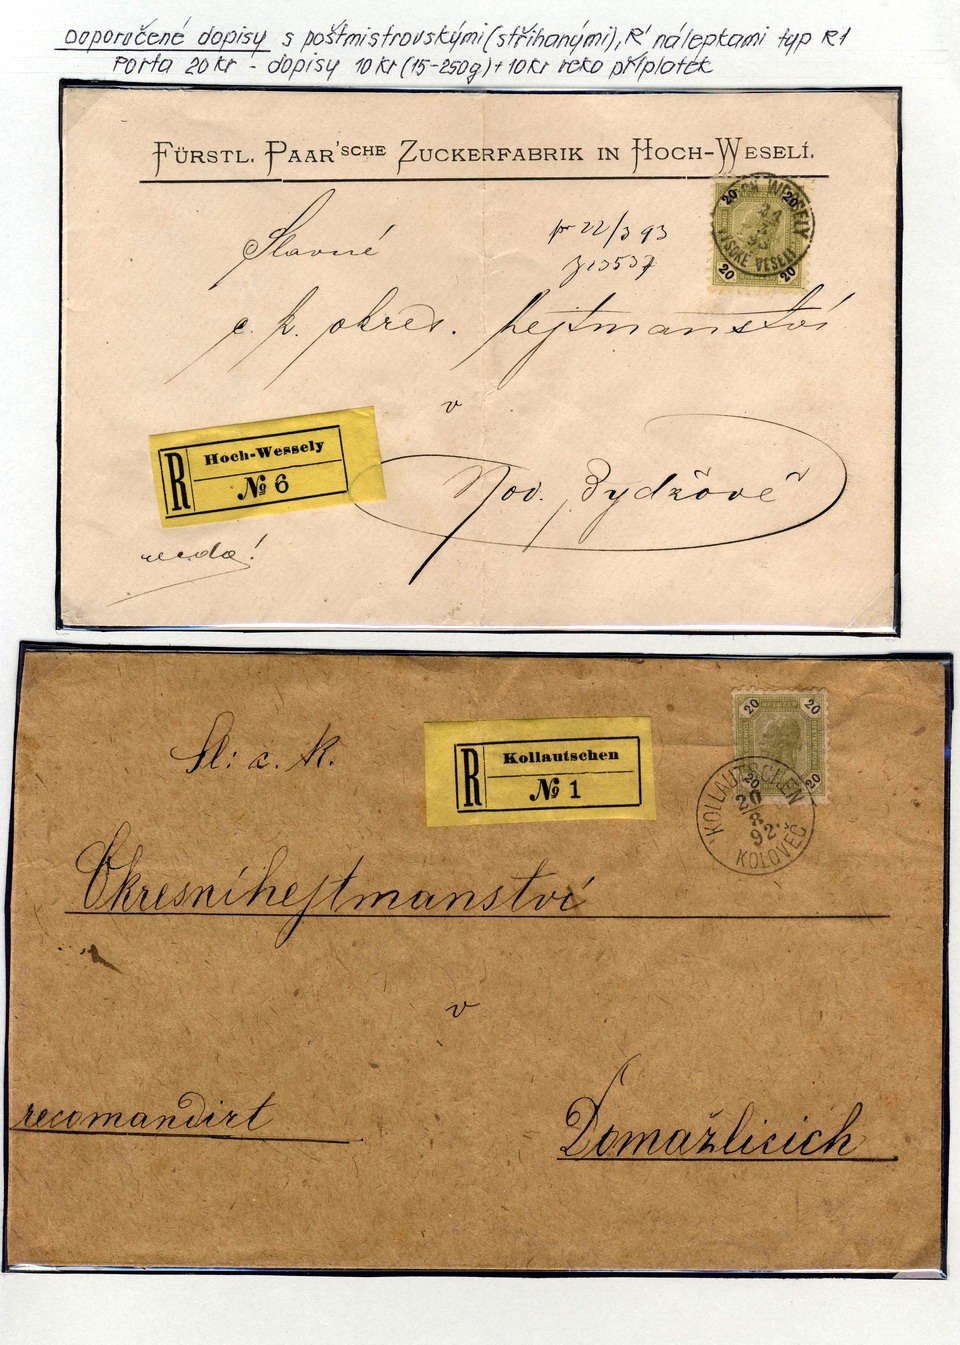 Doporučené dopisy s poštmistrovskými (stříhanými), R nálepkami typ R1
Porta 20 kr - dopisy 10 kr (15-250g) + 10 kr reko příplatek
FÜRSTL. PAAR'SCHE ZUCKERFABRIK IN HOCH-WESELÍ.
20 20
WESSELY
VYSOKÉ VESELÍ
20 20
Slavné
pr 22/3 93
c. k. okres. hejtmanství
v
R Hoch-Wessely
№ 6
Nov. Bydžově
recdo!
20 20
Sl: c. k.
R Kollautschen
№ 1
20 20
KOLLAUTSCHEN
92
KOLOVEČ
Okresníhejtmanství
v
recomandirt
Domažlicích